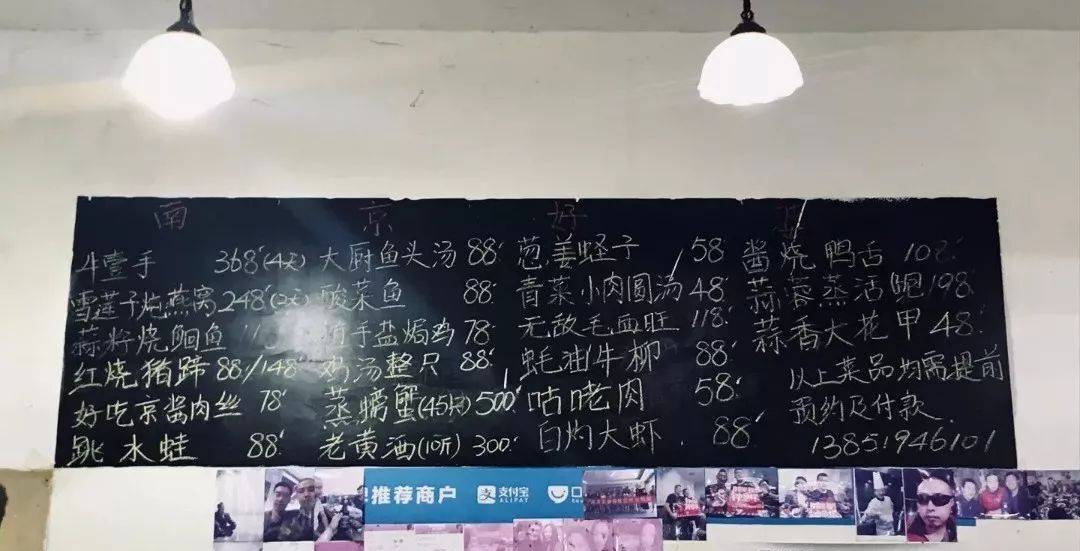 南 京 好
斗壹手 368(4天) 大厨鱼头汤 88 葱姜蛏子 58 酱烧鸭舌 108
雪莲子炖燕窝 248(2天) 酸菜鱼 88 青菜小肉圆汤 48 蒜蓉蒸活鲍 198
烧鮰鱼 手盐焗鸡 78 无敌毛血旺 118 蒜香大花甲 48
红烧猪蹄 88/148 鸡汤整只 88 蚝油牛柳 88 以上菜品均需提前
好吃京酱肉丝 78 蒸螃蟹(45只) 500 咕咾肉 58 预约及付款
跳水蛙 88 老黄酒(10斤) 300 白灼大虾 88 13851946101
推荐商户 支付宝 ALIPAY 口